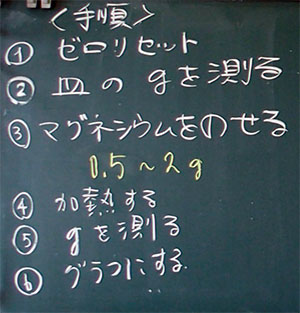 <手順>
① ゼロリセット
② 皿の gを測る
③ マグネシウムをのせる
0.5～2g
④ 加熱する
⑤ gを測る
⑥ グラフにする